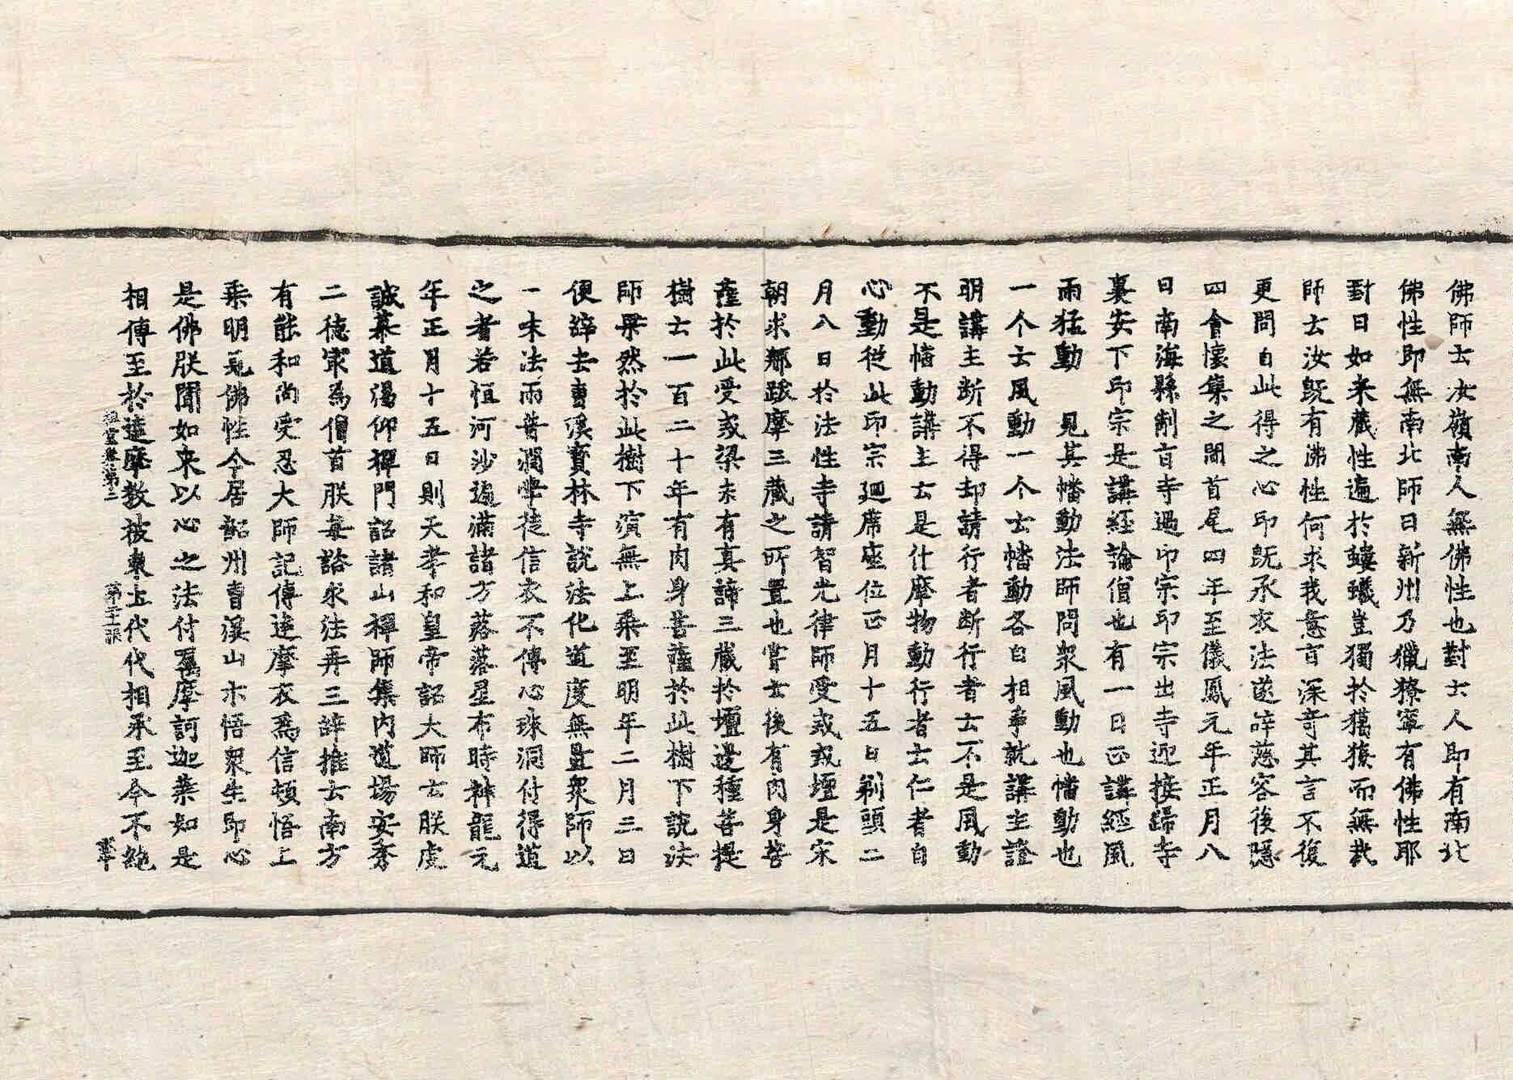 佛師云汝嶺南人無佛性也對云人即有南北
佛性即無南北師曰新州乃獵獠寧有佛性耶
對曰如来藏性遍於螻蟻豈獨於獦獠而無哉
師云汝既有佛性何求我意旨深奇其言不復
更問自此得之心印既承衣法遂辞慈容後隱
四會懷集之間首尾四年至儀鳳元年正月八
日南海縣制旨寺遇印宗印宗出寺迎接歸寺
裏安下印宗是講經論僧也有一日正講經風
雨猛動見其幡動法師問衆風動也幡動也
一个云風動一个云幡動各自相爭就講主證
明講主断不得却請行者断行者云不是風動
不是幡動講主云是什摩物動行者云仁者自
心動従此印宗廻席座位正月十五日剃頭二
月八日於法性寺請智光律師受戒戒壇是宋
朝求那跋摩三藏之所置也嘗云後有肉身菩
薩於此受戒梁末有真諦三藏於壇邊種菩提
樹云一百二十年有肉身菩薩於此樹下說法
師果然於此樹下演無上乗至明年二月三日
便辞去曹溪寳林寺說法化道度無量衆師以
一味法雨普潤學徒信衣不傳心珠洞付得道
之者若恒河沙遍滿諸方落落星布時神龍元
年正月十五日則天孝和皇帝詔大師云朕虔
誠慕道渴仰禪門詔諸山禪師集内道場安秀
二德冣為僧首朕每諮求法再三辞推云南方
有能和尚受忍大師記傳達摩衣為信頓悟上
乗明見佛性今居韶州曹溪山示悟衆生即心
是佛朕聞如来以心之法付囑摩訶迦葉如是
相傳至於達摩教被東土代代相承至今不絶
祖堂卷第二